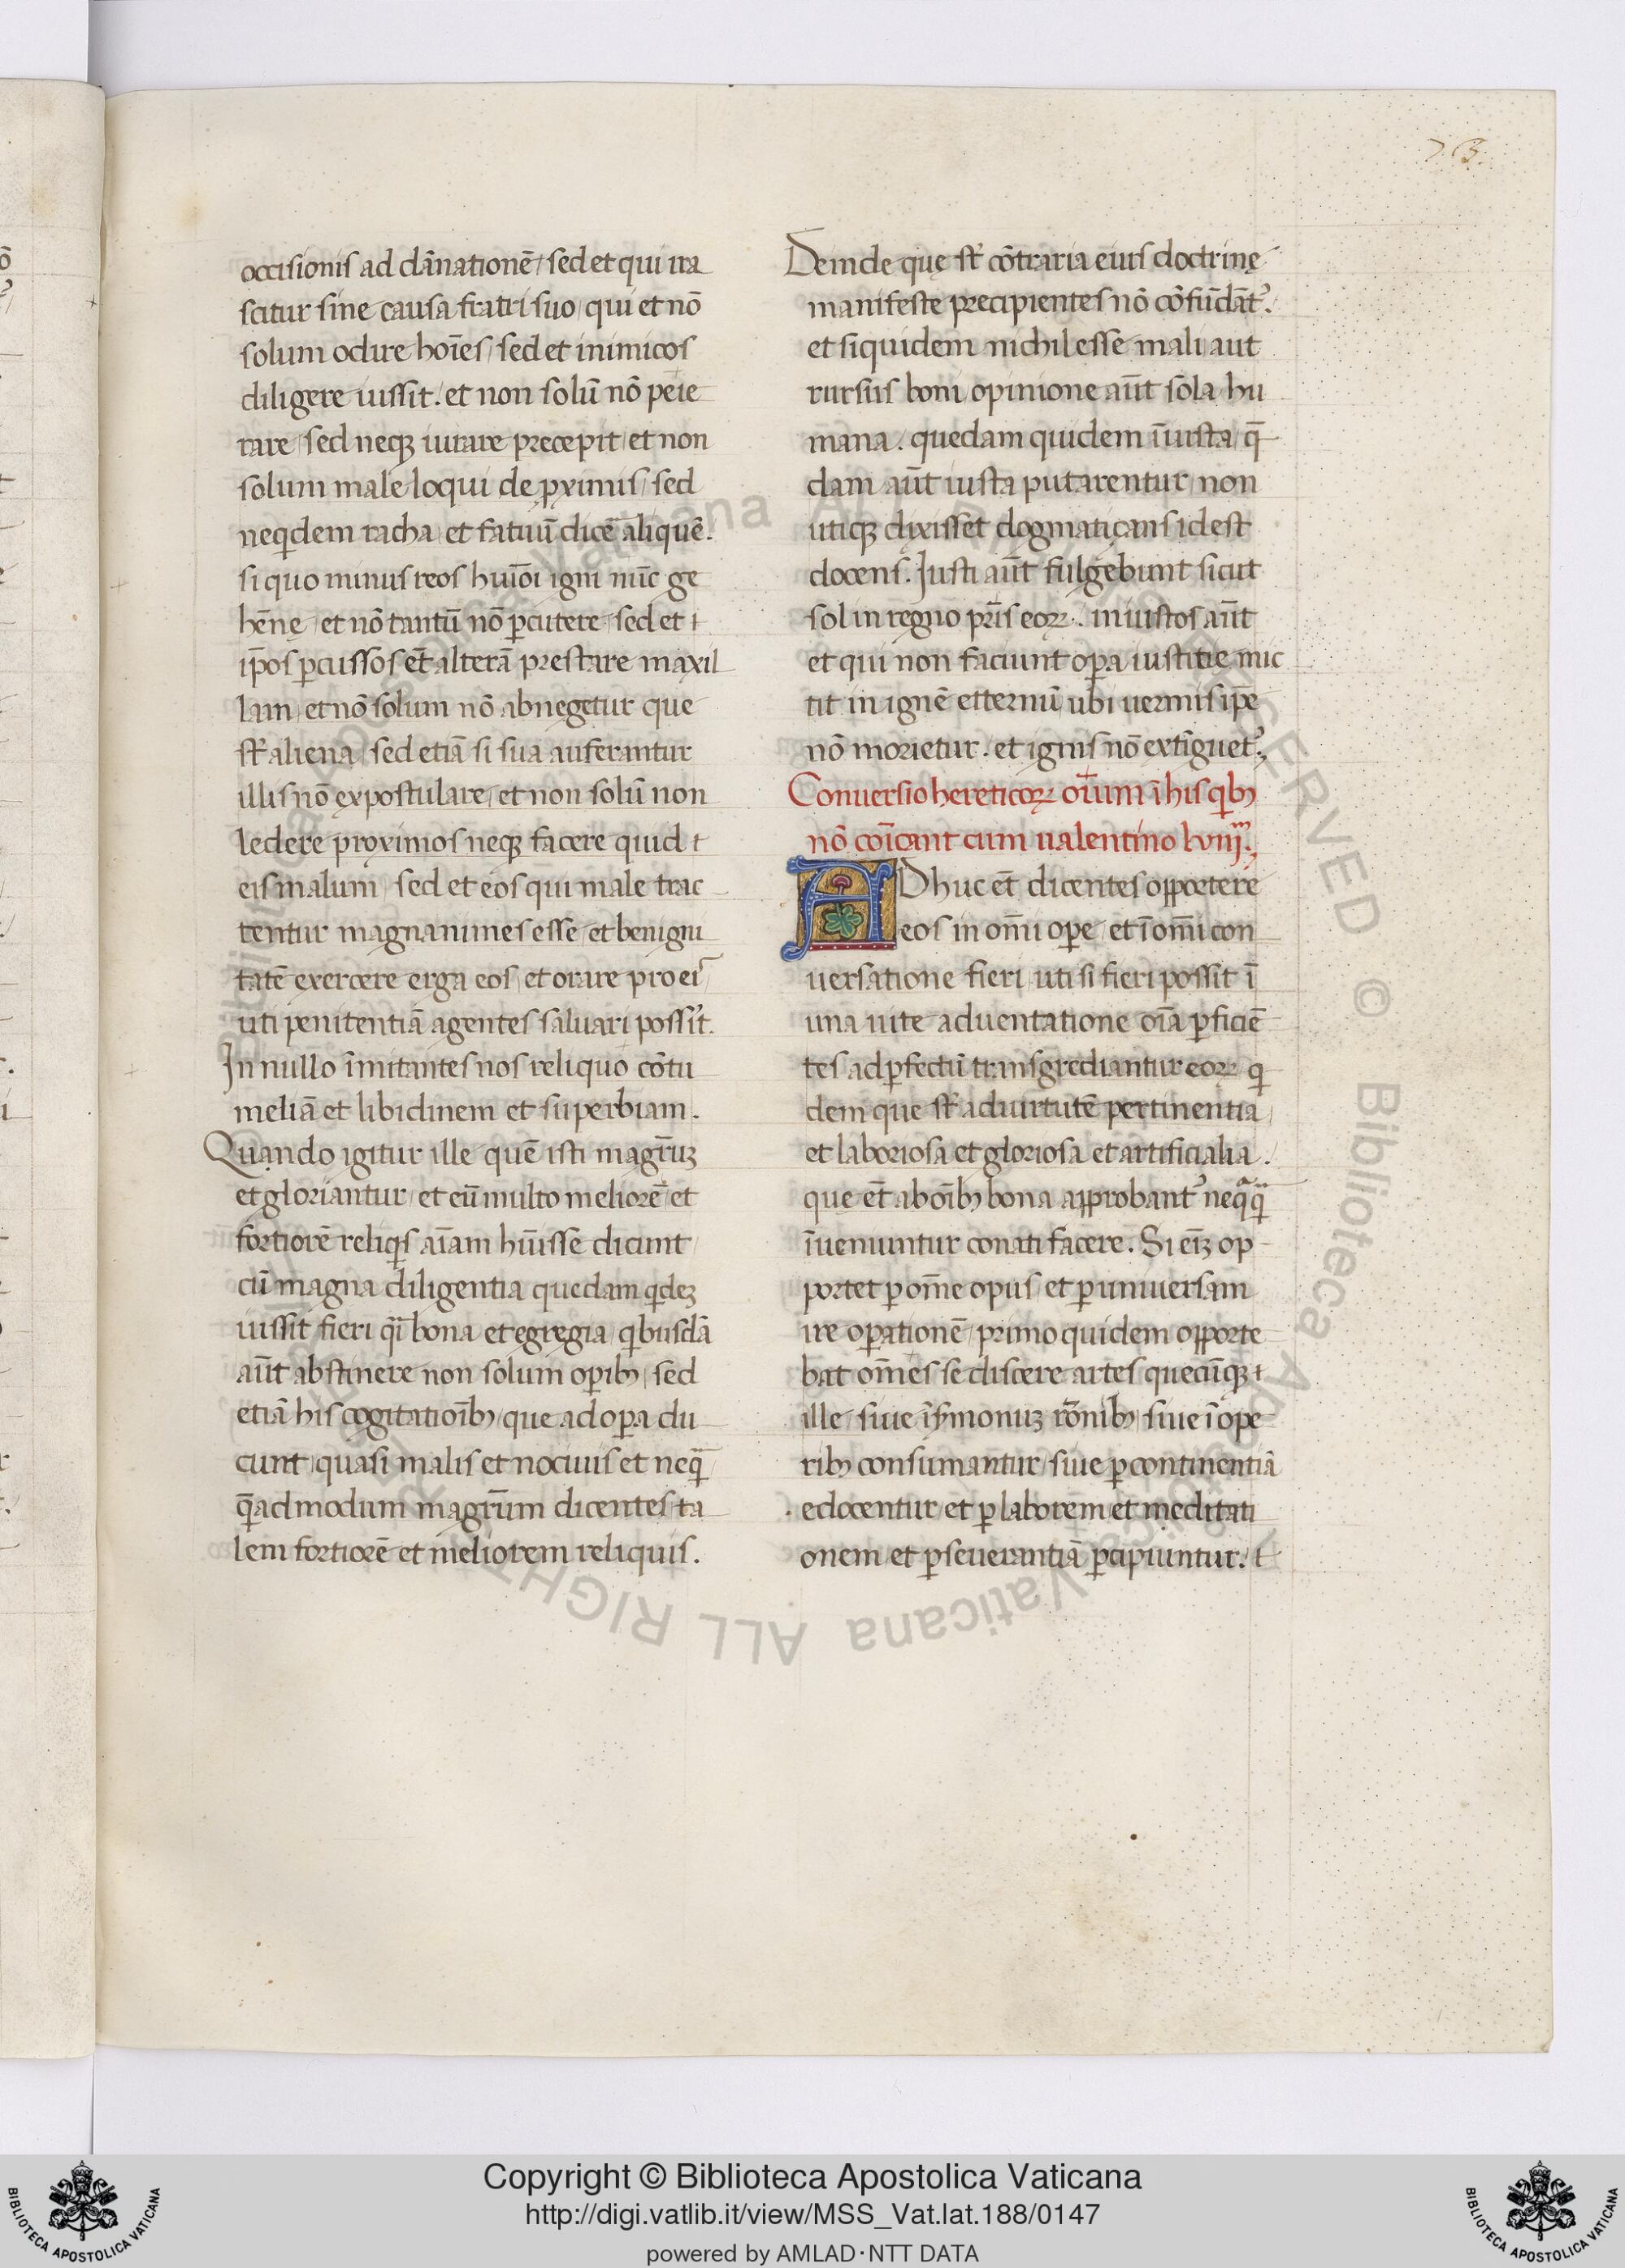 73
occisionis ad dānationē / sed et qui ira
scitur sine causa fratri suo / qui et nō
solum odire hoīes / sed et inimicos
diligere iussit. et non solū nō peie
rare / sed neqꝫ iurare precepit / et non
solum male loqui de ꝓximis / sed
neqdem racha / et fatuū dicē aliquē.
si quo minus reos huiōi igni nūc ge
hēnę / et nō tantū nō ꝑcutere / sed et ı
ip̄os ꝑcussos et̄ alterā prestare maxil
lam / et nō solum nō abnegetur que
st̄ aliena / sed etiā si sua auferantur
illis nō expostulare / et non solū non
ledere proximos neqꝫ facere quid ı
eis malum / sed et eos qui male trac
tentur magnanimes esse / et benigni
tatē exercere erga eos / et orare pro eis
uti penitentiā agentes saluari poss̄it.
In nullo īmitantes nos reliquo cōtu
meliā et libidinem et superbiam.
Quando igitur ille quē isti magr̄ūꝫ
et gloriantur / et eū multo meliorē et
fortiorē reliqs aīam hūisse dicunt /
cū magna diligentia quedam qdeꝫ
iussit fieri qī bona et egregia / qbusdā
aūt abstinere non solum oꝑibꝫ / sed
etiā his cogitatioībꝫ / que ad oꝑa du
cunt / quasi malis et nociuis et neq̄
q̄admodum magr̄um dicentes ta
lem fortiorē et meliorem reliquis.
Deinde quę st̄ cōtraria eius doctrinę
manifeste precipientes nō cōfūdāt᷒.
et siquidem nichil esse mali aut
rursus boni / opinione aūt sola hu
mana. quedam quidem īiusta / q̄
dam aūt iusta putarentur / non
utiqꝫ dixisset dogmatiçans id est
docens. Iusti aūt fulgebunt sicut
sol in regno pr̄is eoꝝ. iniustos aūt
et qui non faciunt oꝑa iustitie mic
tit in ignē etternū / ubi uermis ip̄e
nō morietur. et ignis nō extīguet᷒.
Conuersio hereticoꝝ oīum ī his qbꝫ
nō coīcant cum ualentino lviijm.
ADhuc et̄ dicentes opportere
eos in om̄i oꝑe / et ī om̄i con
uersatione fieri / uti si fieri possit ī
una uite aduentatione oīa ꝑficiē
tes ad ꝑfectū transgrediantur eoꝝ q
dem que st̄ ad uirtutē pertinentia /
et laboriosa et gloriosa et artificialia.
que et̄ ab oībꝫ bona approbant᷒ neqq̄
īueniuntur conati facere. Si eīꝫ op
portet ꝑ om̄e opus / et ꝑ uniuersam
ire oꝑationē / primo quidem opporte
bat om̄es se discere artes quecūqꝫ ı
ille / siue ī s̄monuꝫ rōnibꝫ / siue ī ope
ribꝫ consumantur / siue ꝑ continentiā
edocentur / et ꝑ laborem et meditati
onem et ꝑseuerantiā ꝑcipiuntur. t
Copyright © Biblioteca Apostolica Vaticana
http://digi.vatlib.it/view/MSS_Vat.lat.188/0147
powered by AMLAD·NTT DATA